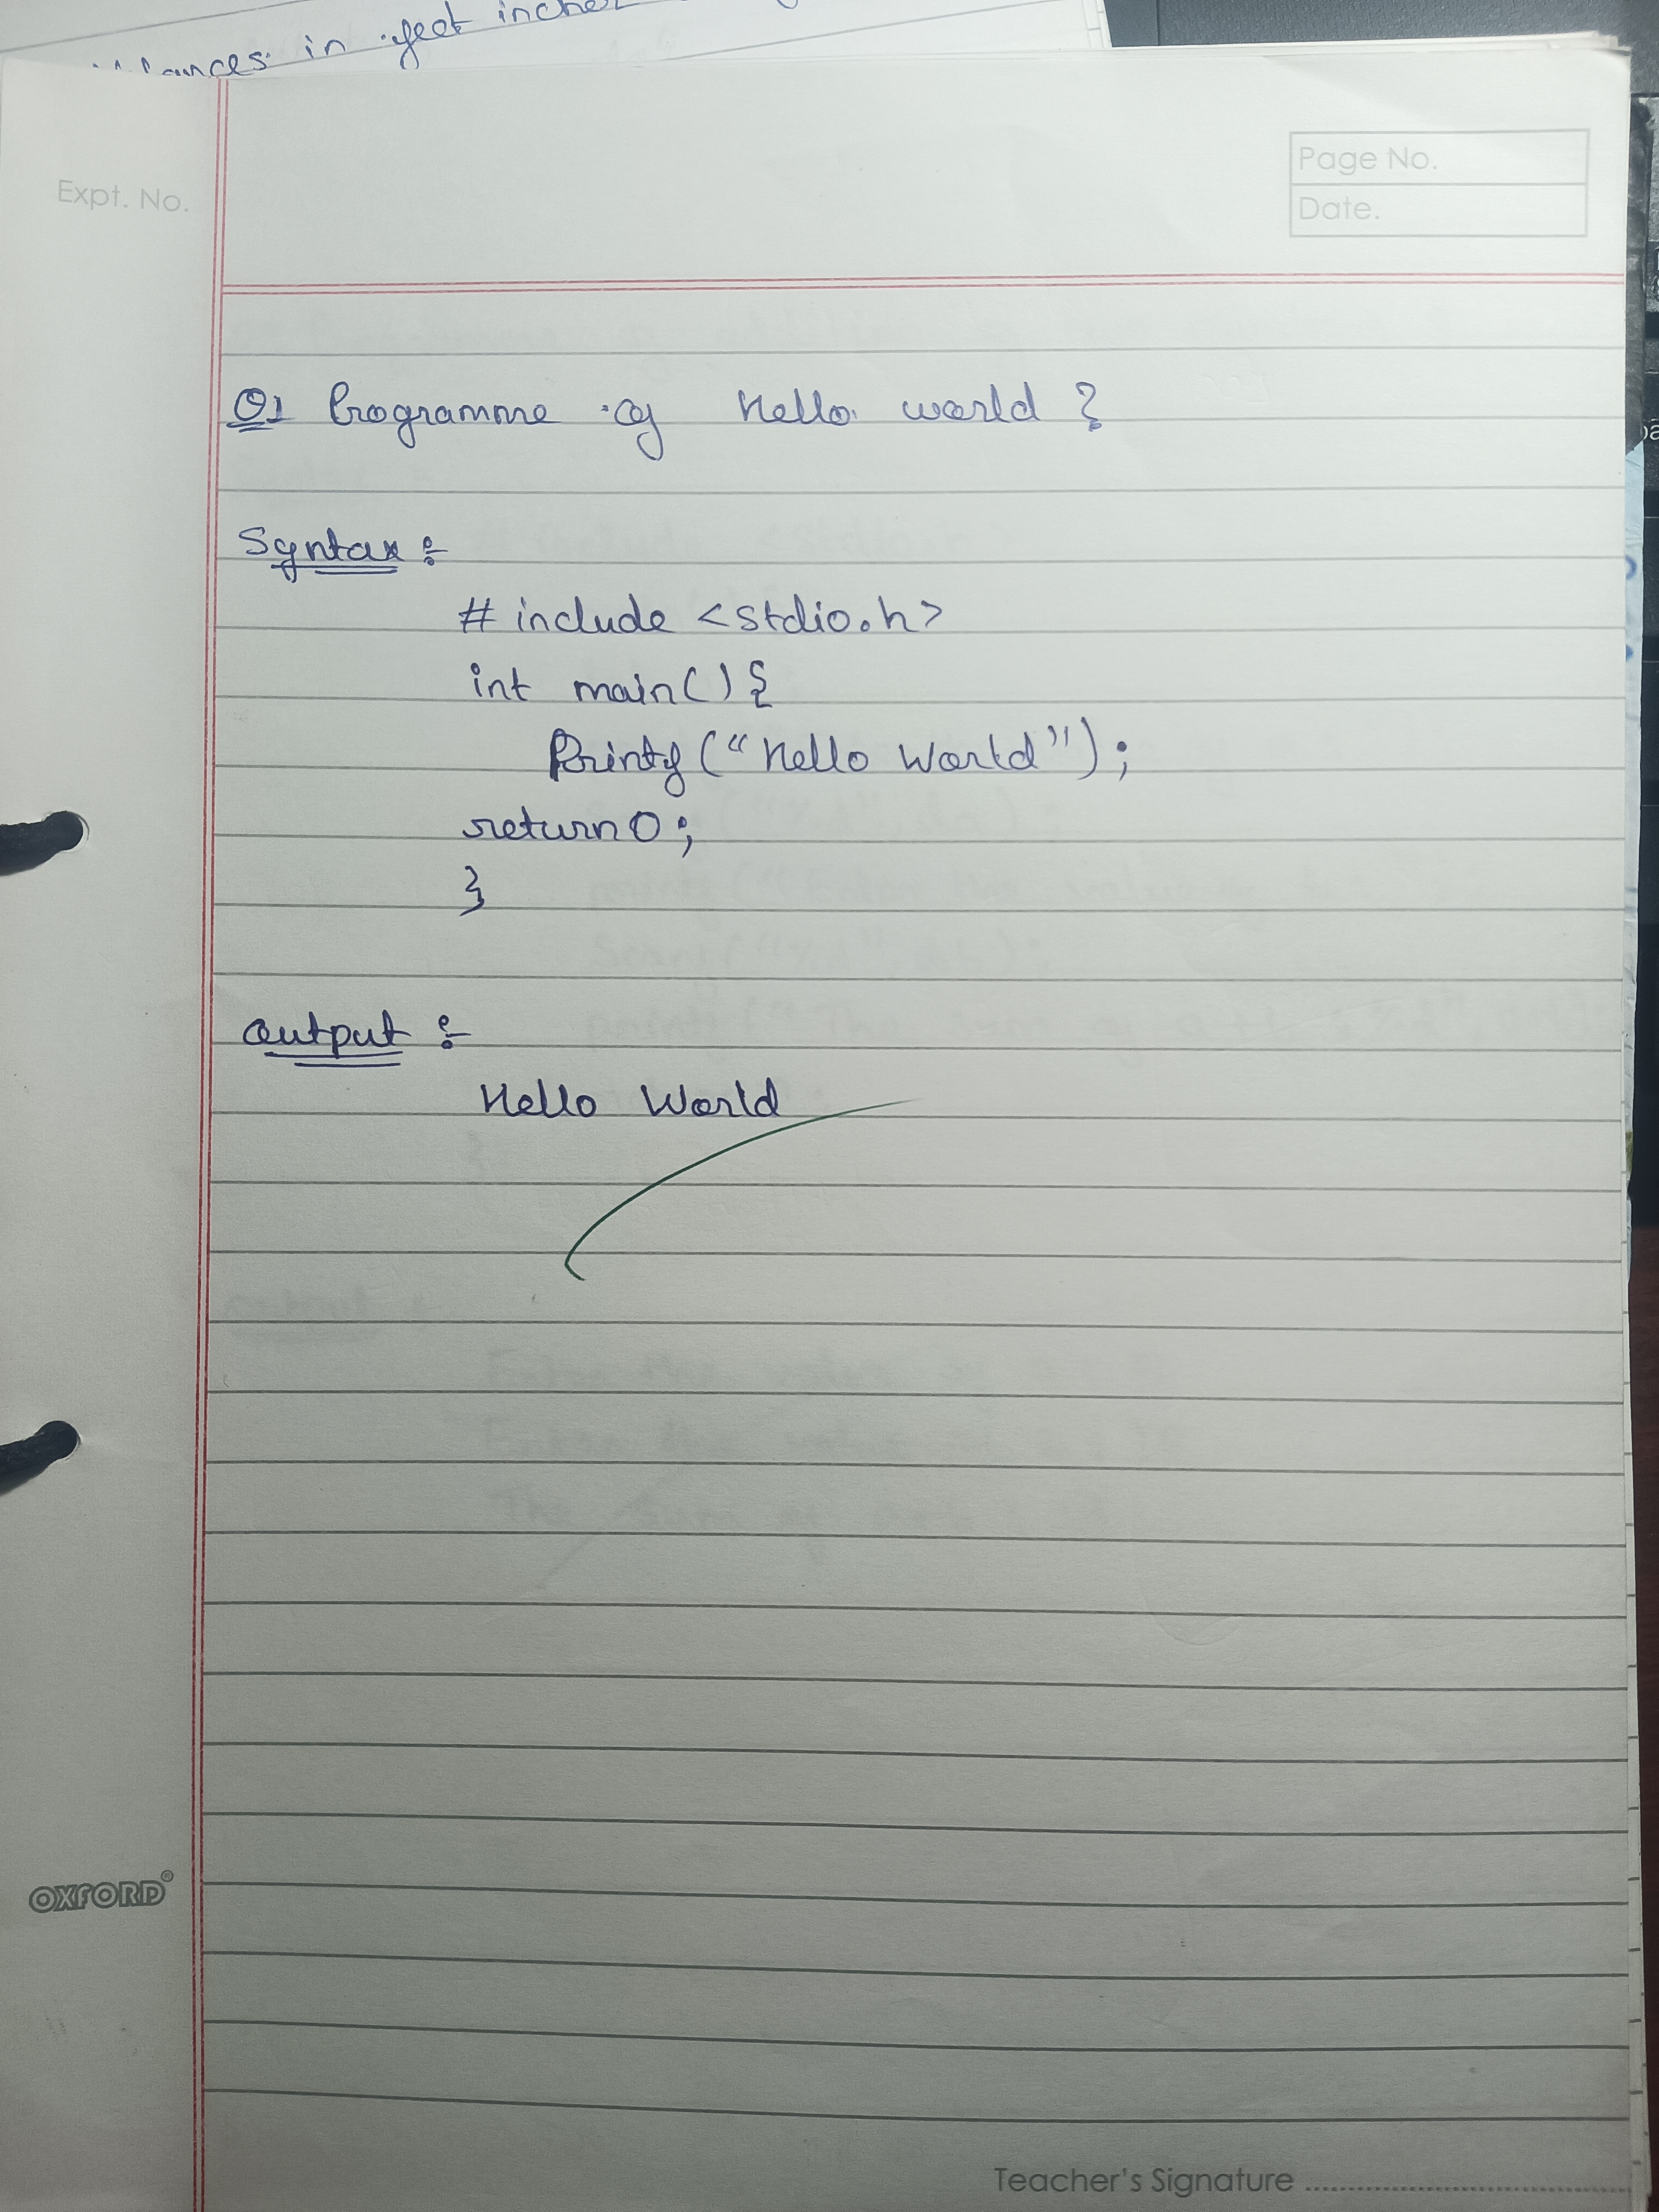 in feet inches
Expt. No.
Page No.
Date.
Q1 Programme of Hello world ?
Syntax :-
# include <stdio.h>
int main() {
Printf ("Hello World");
return 0;
}
Output :-
Hello World
OXFORD®
Teacher's Signature